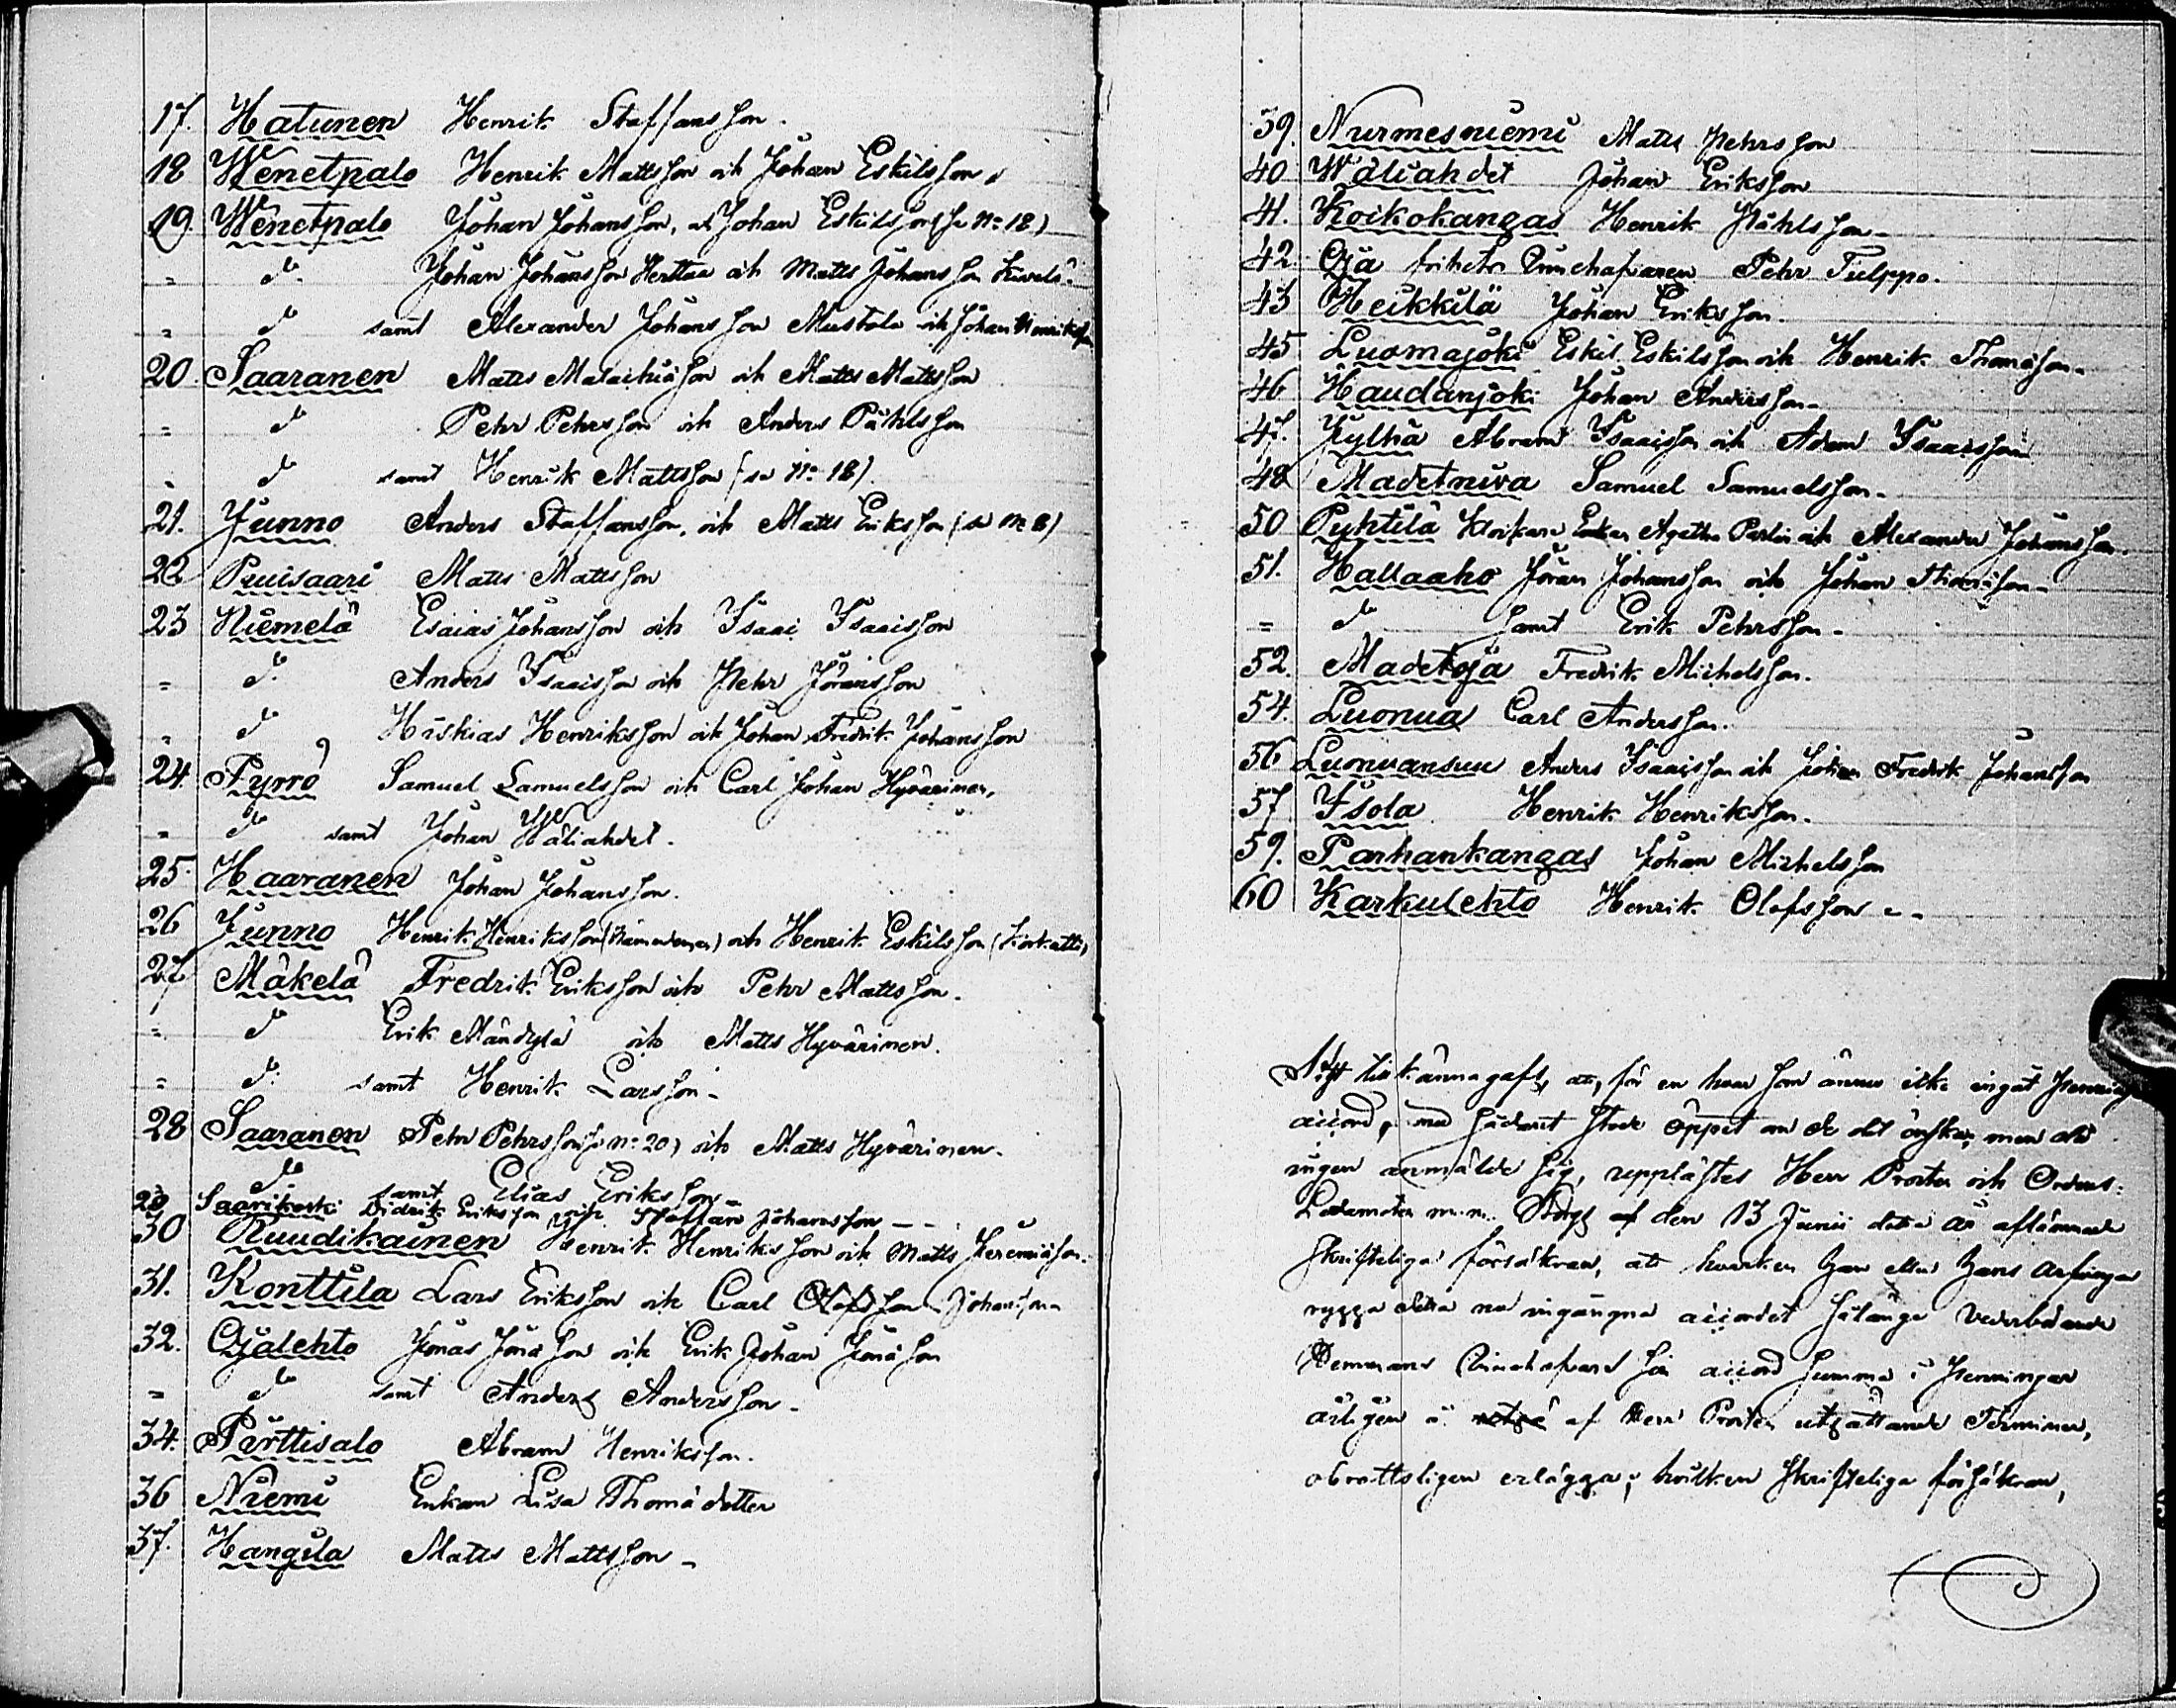 17. Hatunen Henrik Staffansson.
18 Wenetpalo Henrik Mattsson och Johan Eskilsson
19. Wenetpalo Johan Johansson, och Johan Eskilsson (se No 18)
" do Johan Johansson Herttua och Matts Johansson Kivelä.
" do samt Alexander Johansson Mustola och Johan Henriksson
20. Saaranen Matts Malachiäson och Matts Mattsson
" do Pehr Pehrsson och Anders Påhlsson
" do samt Henrik Mattsson (se No 18).
21. Junno Anders Staffansson, och Matts Eriksson (se No 8)
22 Puuisaari Matts Mattsson
23 Niemelä Esaias Johansson och Isaac Isaacsson
" do Anders Isaacsson och Pehr Jöransson
" do Hiskias Henriksson och Johan Fredrik Johansson
24. Pyrrö Samuel Samuelsson och Carl Johan Hyvärinen,
" do samt Johan Wäliahdet.
25. Haaranen Johan Johansson.
26 Junno Henrik Henriksson och Henrik Eskilsson (Korkatti)
27 Mäkelä Fredrik Eriksson och Pehr Mattsson.
" do Erik Mändylä och Matts Hyvärinen.
" do samt Henrik Larsson -
28 Saaranen Pehr Pehrsson (se No 20) och Matts Hyvärinen.
do samt Elias Eriksson -
29 Saarikoski Didrik Eriksson och Staffan Johansson - -
30 Ruudikainen Henrik Henriksson och Matts Jeremiäson.
31. Konttila Lars Eriksson och Carl Olofsson Johansson
32. Ojalehto Jonas Jonäson och Erik Johan Jonäson
" do samt Anders Andersson -
34. Pirttisalo Abram Henriksson.
36 Niemi Enkan Lisa Thomädotter
37. Hangila Matts Mattsson -
39. Nurmesniemi Matts Pehrsson
40 Wäliahdet Johan Eriksson
41. Koikokangas Henrik Påhlsson -
42. Oja frihets Innehafvaren Pehr Tulppo.
43 Heikkilä Johan Eriksson.
45 Luomajoki Eskil Eskilsson och Henrik Thomäson -
46 Haudanjoki Johan Andersson -
47. Kylmä Abram Isaacsson och Adam Isaacsson
48 Madetniva Samuel Samuelsson -
50 Pyhtilä Enkan Agatha Perlin och Alexander Johansson.
51. Hallaaho Jöran Johansson och Johan Thomäson -
" do samt Erik Pehrsson -
52. Madetoja Fredrik Michelsson.
54. Luonua Carl Andersson.
56 Luonuansuu Anders Isaacsson och Johan Fredrik Johansson
57 Isola Henrik Henriksson.
59. Parhankangas Johan Michelsson
60 Karkulehto Henrik Olofsson -
tillkännagafs, att, för en hvar som ännu icke ingåt
accord, med sådant stode öppet om de det önska, men då
ingen anmälde sig, upplästes Herr Prosten och Ordens-
Ledamoten m.m. af den 13 Junii detta år aflämnade
skrifteliga försäkran, att hvarken han eller hans arfvingar
rygga detta nu ingångna accordet sålänge vederbörande
Hemmans Innehafvare sin accord summa i Penningar
årligen å af Herr Prosten utsättande Terminer,
obrottsligen erlägga; hvilken skrifteliga försäkran,